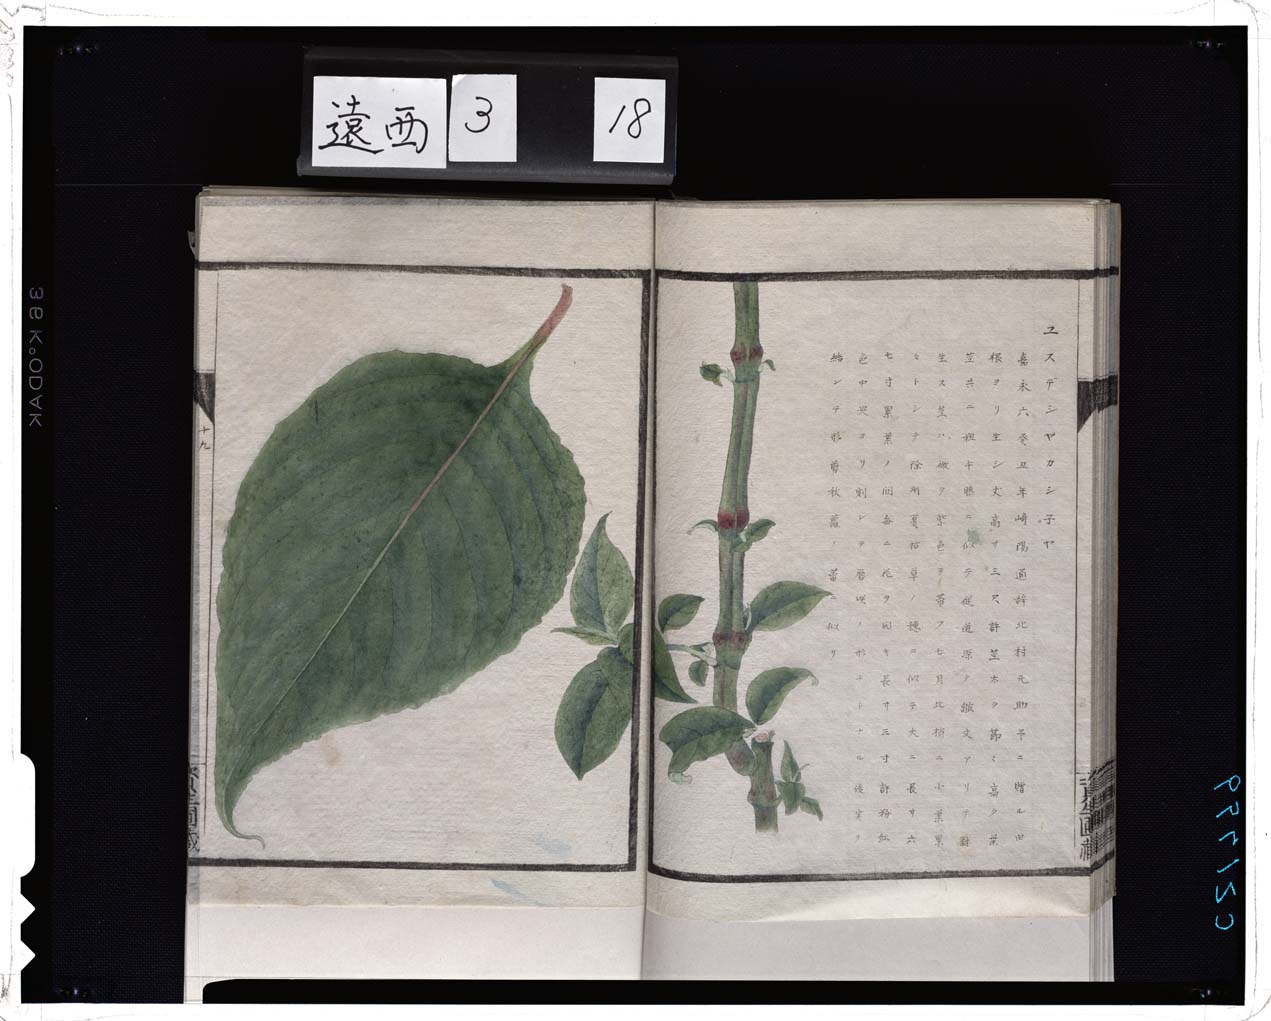 遠西
3
18
ユスデシヤカシ子ヤ
嘉永六癸丑年崎陽通辞北村元助予ニ贈ル旧
根ヨリ生シ丈高サ三尺許莖木ク節々高ク葉
莖共ニ粗キ藤ニ似テ縦道原ク皺文アリテ
生ス莖ハ微ク紫色ヲ帯フ七月比梢ニ小葉累
々トシテ徐州夏枯草ノ穂ニ似テ大ニ長サ六
七寸累葉ノ間每ニ花ヲ開キ長寸三寸許粉紅
色中央ヨリ割レテ唇吻ノ形ニトナル後実ヲ
結シテ形剪秋蘿ノ蕾ニ似リ
十九
36 KODAK